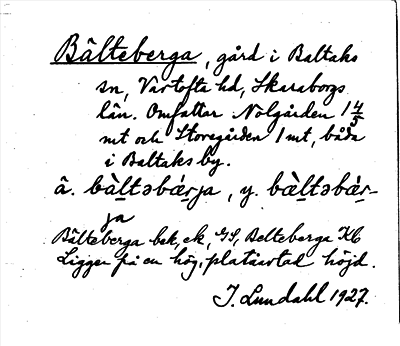 Bälteberga, gård i Baltaks
sn, Vartofta hd, Skaraborgs
län. Omfattar Nolgården 1 4/5
mt och Storegården 1 mt, båda
i Baltaks by.
ä. bàltəbǽrja, y. bæ̀ltəbǽr-
ja
Bälteberga bek, ek, GS, Belteberga
Ligger på en hög, platåartad höjd.
J. Lundahl 1927.